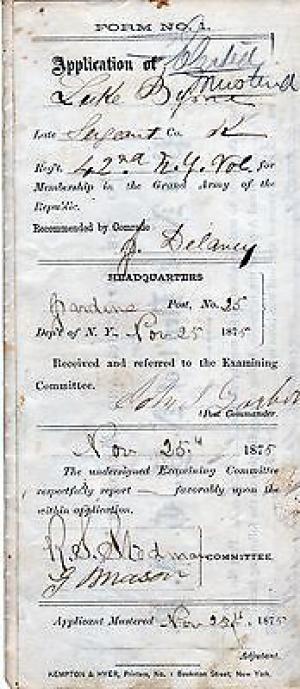 FORM NO. 1.
Application of Elected
Mustered
Luke Byrne
Late Sergeant Co. K
Reg't. 42nd N.Y. Vol. for
Membership in the Grand Army of the
Republic.
Recommended by Comrade
J. Delaney
HEADQUARTERS
Post, No. 25
Dep't of N. Y. Nov 25 1875
Received and referred to the Examining
Committee.
Post Commander.
Nov 25th 1875
The undersigned Examining Committee
respectfully report favorably upon the
within application.
COMMITTEE.
G Mason
Applicant Mustered Nov 25th 1875
Adjutant.
KEMPTON & HYER, Printers, No. 1 Beekman Street, New York.